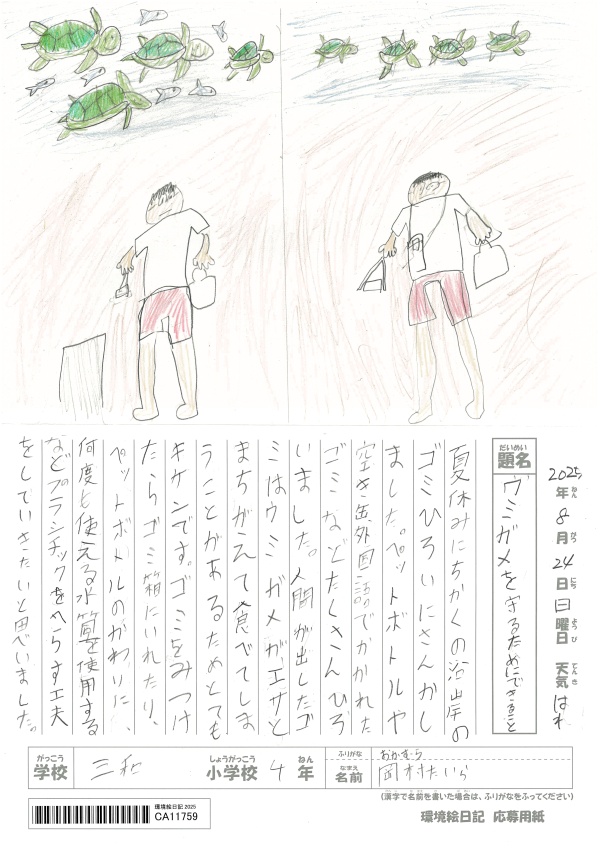 2025年ねん 8月がつ 24日にち 日曜日ようび 天気てんき はれ
題名だいめい ウミガメを守るためにできること
夏休みにちかくの沿岸の
ゴミひろいにさんかし
ました。ペットボトルや
空き缶、外国語でかかれた
ゴミなどたくさんひろ
いました。人間が出したゴ
ミはウミガメがエサと
まちがえて食べてしま
うことがあるためとても
キケンです。ゴミをみつけ
たらゴミ箱にいれたり、
ペットボトルのかわりに、
何度も使える水筒を使用する
などプラスチックをへらす工夫
をしていきたいと思いました。
学校がっこう 三和 小学校しょうがっこう 4年ねん
ふりがな おかむら
名前なまえ 岡村たいら
(漢字で名前を書いた場合は、ふりがなをふってください)
環境絵日記 2025
CA11759
環境絵日記 応募用紙